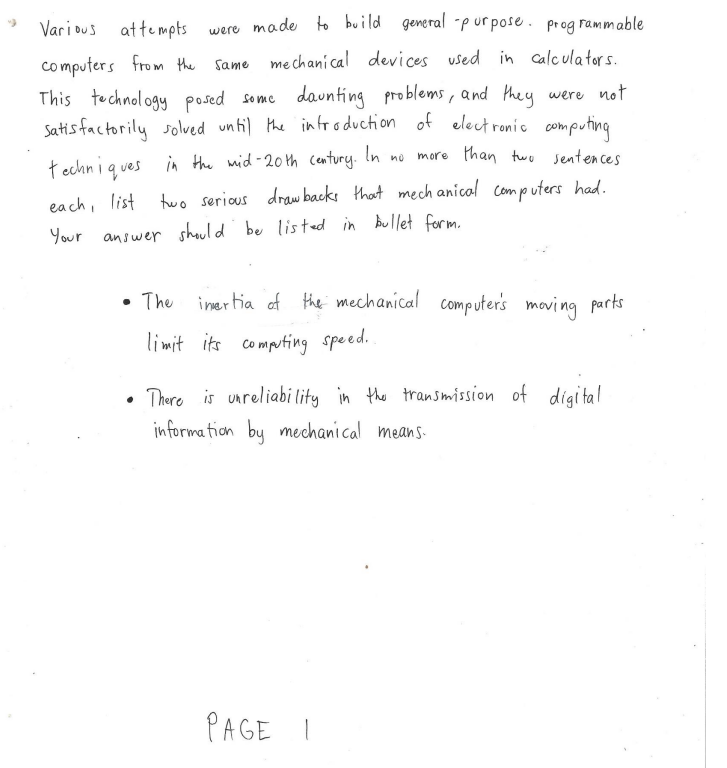 Various attempts were made to build general-purpose. programmable
computers from the same mechanical devices used in calculators.
This technology posed some daunting problems, and they were not
satisfactorily solved until the introduction of electronic computing
techniques in the mid-20th century. In no more than two sentences
each, list two serious drawbacks that mechanical computers had.
Your answer should be listed in bullet form.
• The inertia of the mechanical computer's moving parts
limit its computing speed.
• There is unreliability in the transmission of digital
information by mechanical means.
PAGE 1